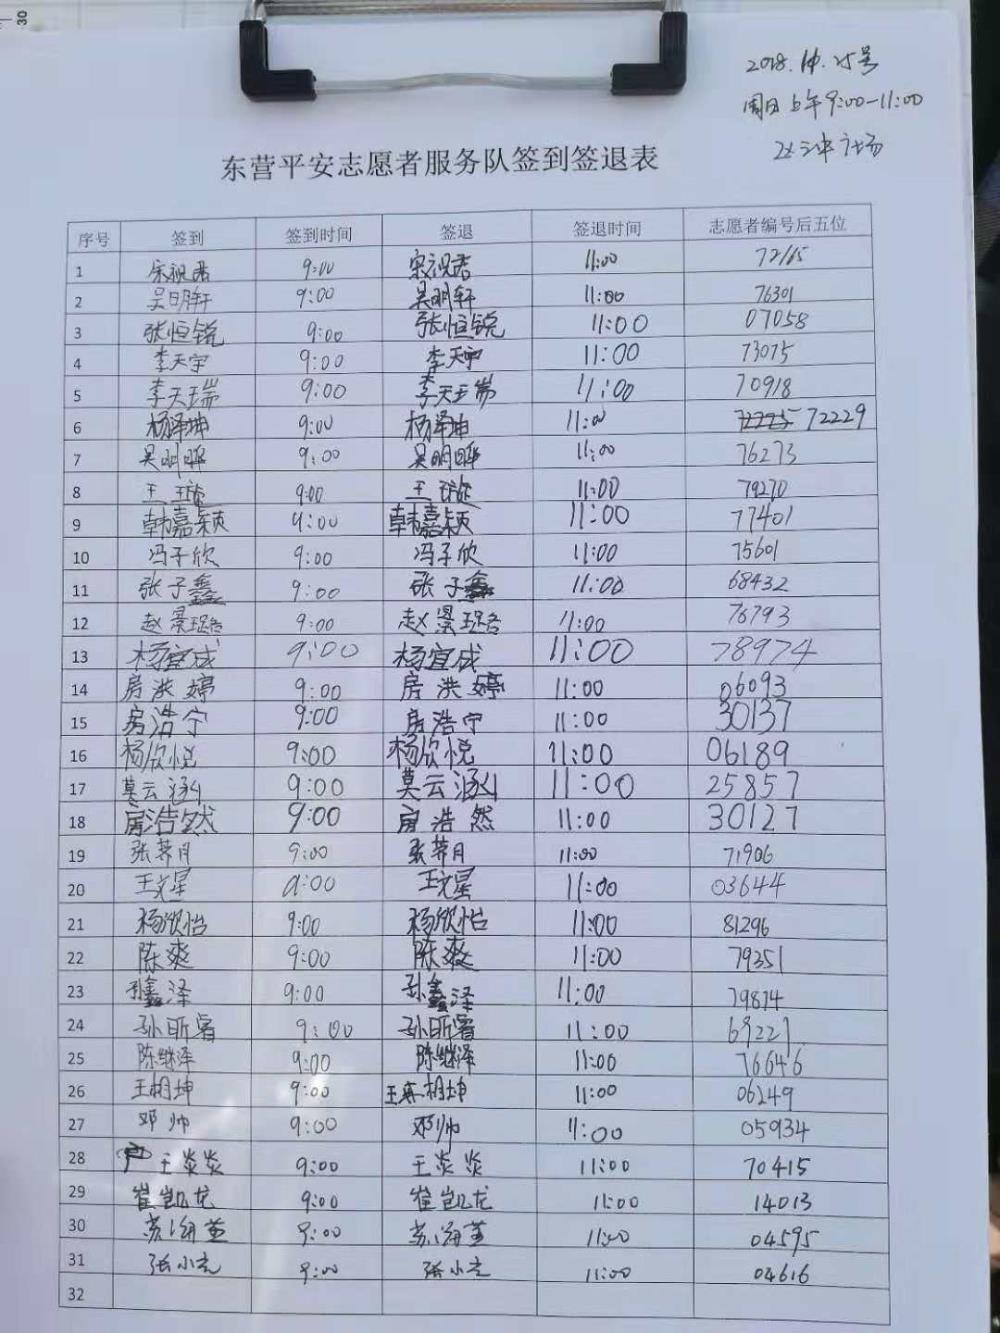 30
周日上午9:00-11:00
东营平安志愿者服务队签到签退表
序号 签到 签到时间 签退 签退时间 志愿者编号后五位
1 宋祝君 9:00 宋祝君 11:00 72165
2 吴明轩 9:00 吴明轩 11:00 76301
3 张恒锐 9:00 张恒锐 11:00 07058
4 李天宇 9:00 李天宇 11:00 73075
5 李天瑞 9:00 李天瑞 11:00 70918
6 杨泽坤 9:00 杨泽坤 11:00 72229
7 吴明晔 9:00 吴明晔 11:00 76273
8 王 9:00 王 11:00 79270
9 韩嘉颖 9:00 韩嘉颖 11:00 77401
10 冯子欣 9:00 冯子欣 11:00 75601
11 张子鑫 9:00 张子鑫 11:00 68432
12 赵景琀 9:00 赵景琀 11:00 76793
13 杨宜成 9:00 杨宜成 11:00 78974
14 房洪婷 9:00 房洪婷 11:00 06093
15 房浩宁 9:00 房浩宁 11:00 30137
16 杨欣悦 9:00 杨欣悦 11:00 06189
17 莫云涵 9:00 莫云涵 11:00 25857
18 房浩然 9:00 房浩然 11:00 30127
19 张荞月 9:00 张荞月 11:00 71906
20 王文星 9:00 王文星 11:00 03644
21 杨欣怡 9:00 杨欣怡 11:00 81296
22 陈爽 9:00 陈爽 11:00 79351
23 孙鑫泽 9:00 孙鑫泽 11:00 79814
24 孙昕睿 9:00 孙昕睿 11:00 69221
25 陈继泽 9:00 陈继泽 11:00 76646
26 王相坤 9:00 王相坤 11:00 06249
27 邓帅 9:00 邓帅 11:00 05934
28 王炎炎 9:00 王炎炎 11:00 70415
29 崔凯龙 9:00 崔凯龙 11:00 14013
30 苏海萱 9:00 苏海萱 11:00 04595
31 张小克 9:00 张小克 11:00 04616
32